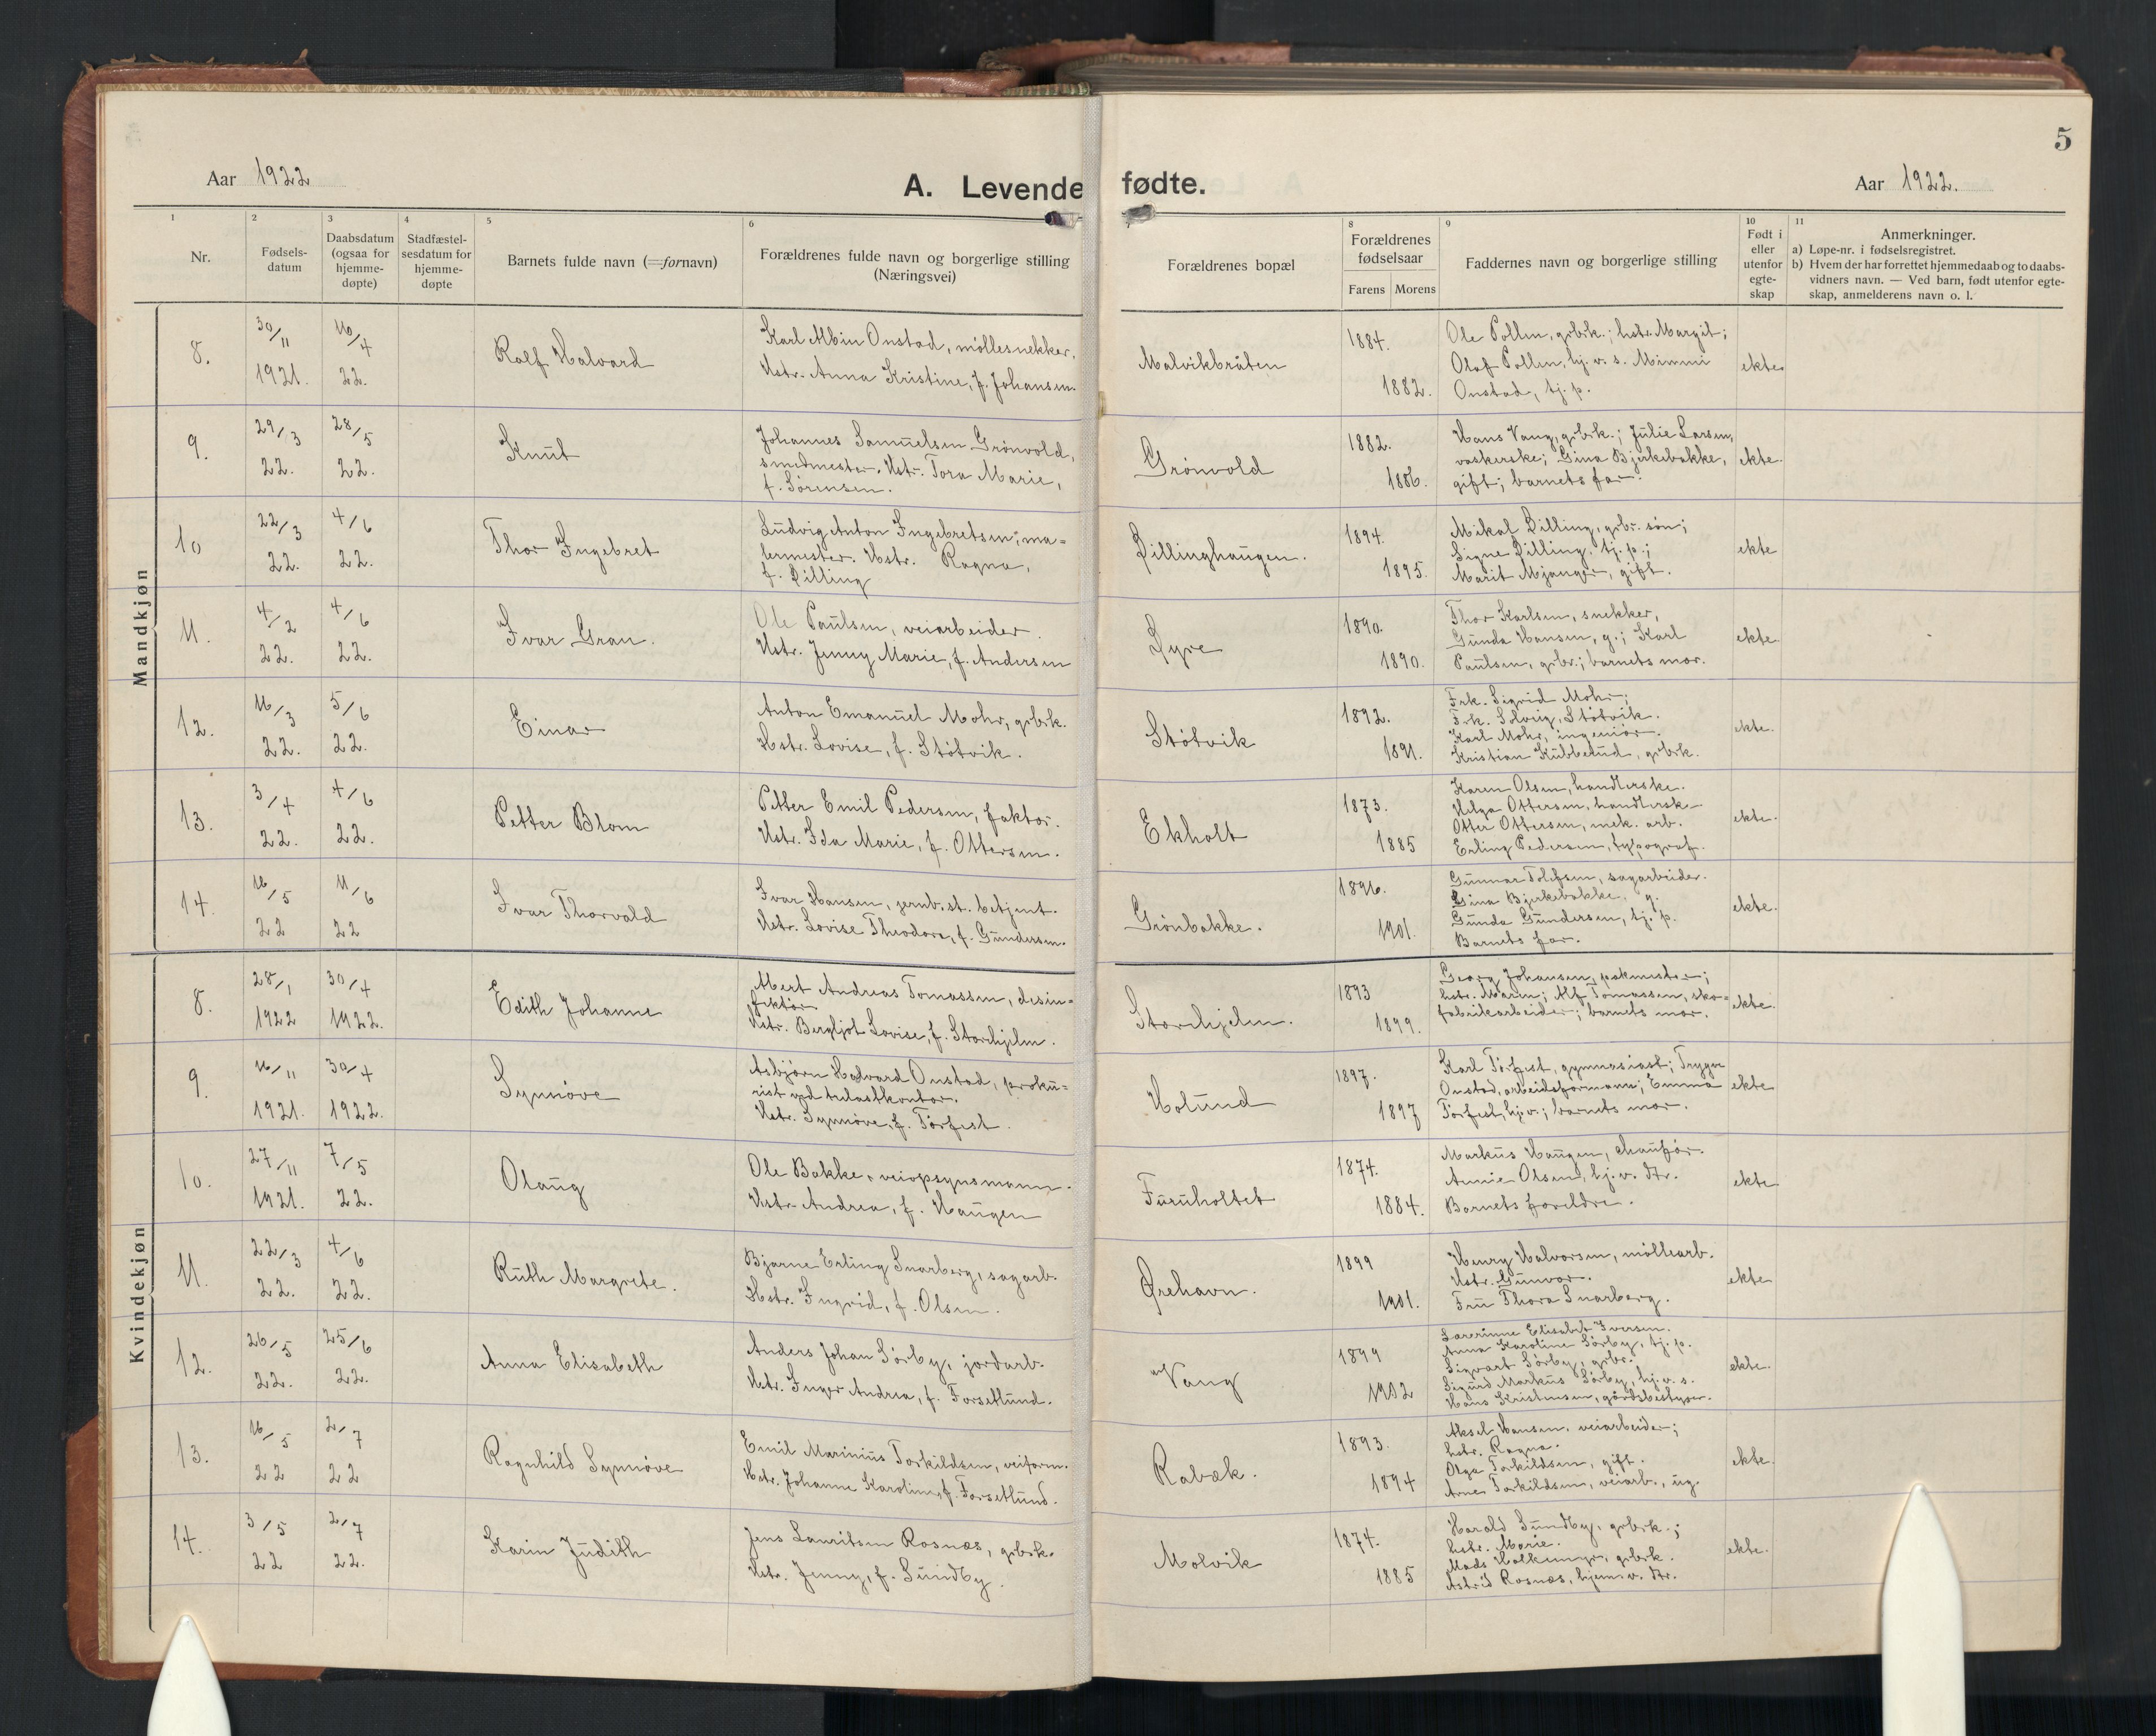 5
Aar 1922
A. Levende fødte.
Aar 1922.
1 2 3 4 5 6 8 9 10 11
Nr.
Fødsels-
datum
Daabsdatum
(ogsaa for
hjemme-
døpte)
Stadfæstel-
sesdatum for
hjemme-
døpte
Barnets fulde navn (=fornavn)
Forældrenes fulde navn og borgerlige stilling
(Næringsvei)
Forældrenes bopæl
Forældrenes
fødselsaar
Farens Morens
Faddernes navn og borgerlige stilling
Født i
eller
utenfor
egte-
skap
Anmerkninger.
a) Løpe-nr. i fødselsregistret.
b) Hvem der har forrettet hjemmedaab og to daabs-
vidners navn. — Ved barn, født utenfor egte-
skap, anmelderens navn o. l.
Mandkjøn
8.
30/11
1921.
16/4
22.
Rolf Halvard
Karl Albin Onstad, møllesnekker,
Hstr. Anna Kristine, f. Johansen.
Malvikbråten
1884.
1882.
Ole Pollen, grbrk.; hstr. Margit;
Olaf Pollen, hj. v. s. Mimmi
Onstad, tj. p.
ekte
9.
29/3
22.
28/5
22.
Knut
Johannes Samuelsen Grönvold,
smedmester. Hstr. Tora Marie,
f. Sörensen.
Grönvold
1882.
1886.
Hans Vang, grbrk.; Julie Larsen,
vaskerske; Gina Bjerkebakke,
gift; barnets far.
ekte.
10
22/3
22.
4/6
22.
Thor Ingebret
Ludvig Anton Ingebretsen, ma=
lermester. Hstr. Ragna,
f. Rilling
Rillinghaugen.
1894.
1895.
Mikal Rilling, grbr. sön;
Signe Rilling, tj. p.;
Marit Mjanger, gift.
ekte
11.
4/2
22.
4/6
22.
Ivar Gran.
Ole Paulsen, veiarbeider.
Hstr. Jenny Marie, f. Andersen
Ryre
1890.
1890.
Thor Karlsen, snekker,
Gunda Hansen, g.; Karl
Paulsen, grbr.; barnets mor.
ekte.
12.
16/3
22.
5/6
22.
Einar
Anton Emanuel Mohr, grbrk.
Hstr. Lovise, f. Stötvik.
Stötvik
1892.
1891.
Frk. Sigrid Mohr;
Frk. Solveig Stötvik.
Karl Mohr, ingeniör.
Kristian Kubberud, grbrk.
ekte.
13.
3/4
22.
4/6
22.
Petter Blom
Petter Emil Pedersen, faktor.
Hstr. Ida Marie, f. Ottersen.
Ekholt
1873.
1885
Karen Olsen, handlerske.
Helga Ottersen, handlerske
Otter Ottersen, mek. arb.
Erling Pedersen, typograf.
ekte.
14.
16/5
22
11/6
22
Ivar Thorvald
Ivar Hansen, jernb. st. betjent.
Hstr. Lovise Theodora, f. Gundersen.
Grönbakke.
1896.
1901.
Gunnar Tolefsen, sagarbeider.
Gina Bjerkebakke, g.
Gunda Gundersen, tj. p.
Barnets far.
ekte.
Kvindekjøn
8.
28/1
1922
30/4
1922.
Edith Johanne
Albert Andreas Tomassen, desin=
fektör
Hstr. Bergljot Lovise, f. Storchjelm.
Storchjelm.
1893
1899.
Georg Johansen, pakmester;
hstr. Maren; Alf Tomassen, sko=
fabrikarbeider; barnets mor.
ekte.
9.
16/11
1921.
30/4
1922.
Synnöve
Asbjörn Halvard Onstad, proku=
rist ved trelastkontor.
Hstr. Synnöve, f. Törfest.
Holund
1897.
1897
Karl Törfest, gymnasiast; Trygve
Onstad, arbeidsformann; Emma
Törfest, hj. v.; barnets mor.
ekte
10.
27/11
1921.
7/5
22.
Olaug
Ole Bakke, veiopsynsmann.
Hstr. Andrea, f. Haugen
Furuholtet
1874.
1884.
Markus Haugen, chauför.
Annie Olsen, hj. v. dtr.
Barnets foreldre.
ekte
11.
22/3
22.
4/6
22.
Ruth Margrete.
Bjarne Erling Snarberg, sagarb.
Hstr. Ingrid, f. Olsen.
Ørehavn.
1899
1901.
Henry Halvorsen, möllearb.
Hstr. Gunvor.
Fru Thora Snarberg.
ekte
12.
26/5
22.
25/6
22.
Anna Elisabeth
Anders Johan Sörby, jordarb.
Hstr. Inger Andrea, f. Forsetlund.
Vang
1899
1902
Lærerinne Elisabet Iversen.
Anna Karoline Sörby, tj. p.
Sigvart Sörby, grbr.
Sigurd Markus Sörby, hj. v. s.
Hans Kristensen, gårdsbestyrer.
ekte.
13.
16/5
22
2/7
22
Ragnhild Synnöve
Emil Marinius Torkildsen, veiform.
Hstr. Johanne Karoline, f. Forsetlund.
Rabæk.
1893.
1894
Aksel Hansen, veiarbeider;
hstr. Ragna.
Olga Torkildsen, gift.
Arne Torkildsen, veiarb., ug.
ekte.
14.
3/5
22
2/7
22.
Karin Judith
Jens Lauritsen Rosnæs, grbrk.
Hstr. Jenny, f. Sundby.
Molvik
1874.
1885
Harald Sundby, grbrk.;
hstr. Marie.
Mads grbrk.
Astrid Rosnæs, hjem. v. dtr.
ekte.